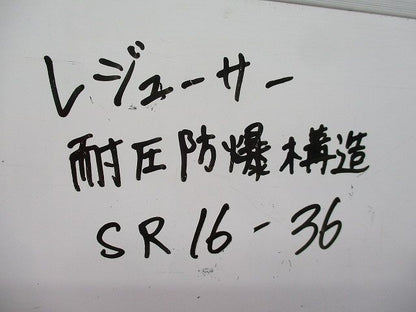 レジューサー
耐圧防爆構造
SR16-36